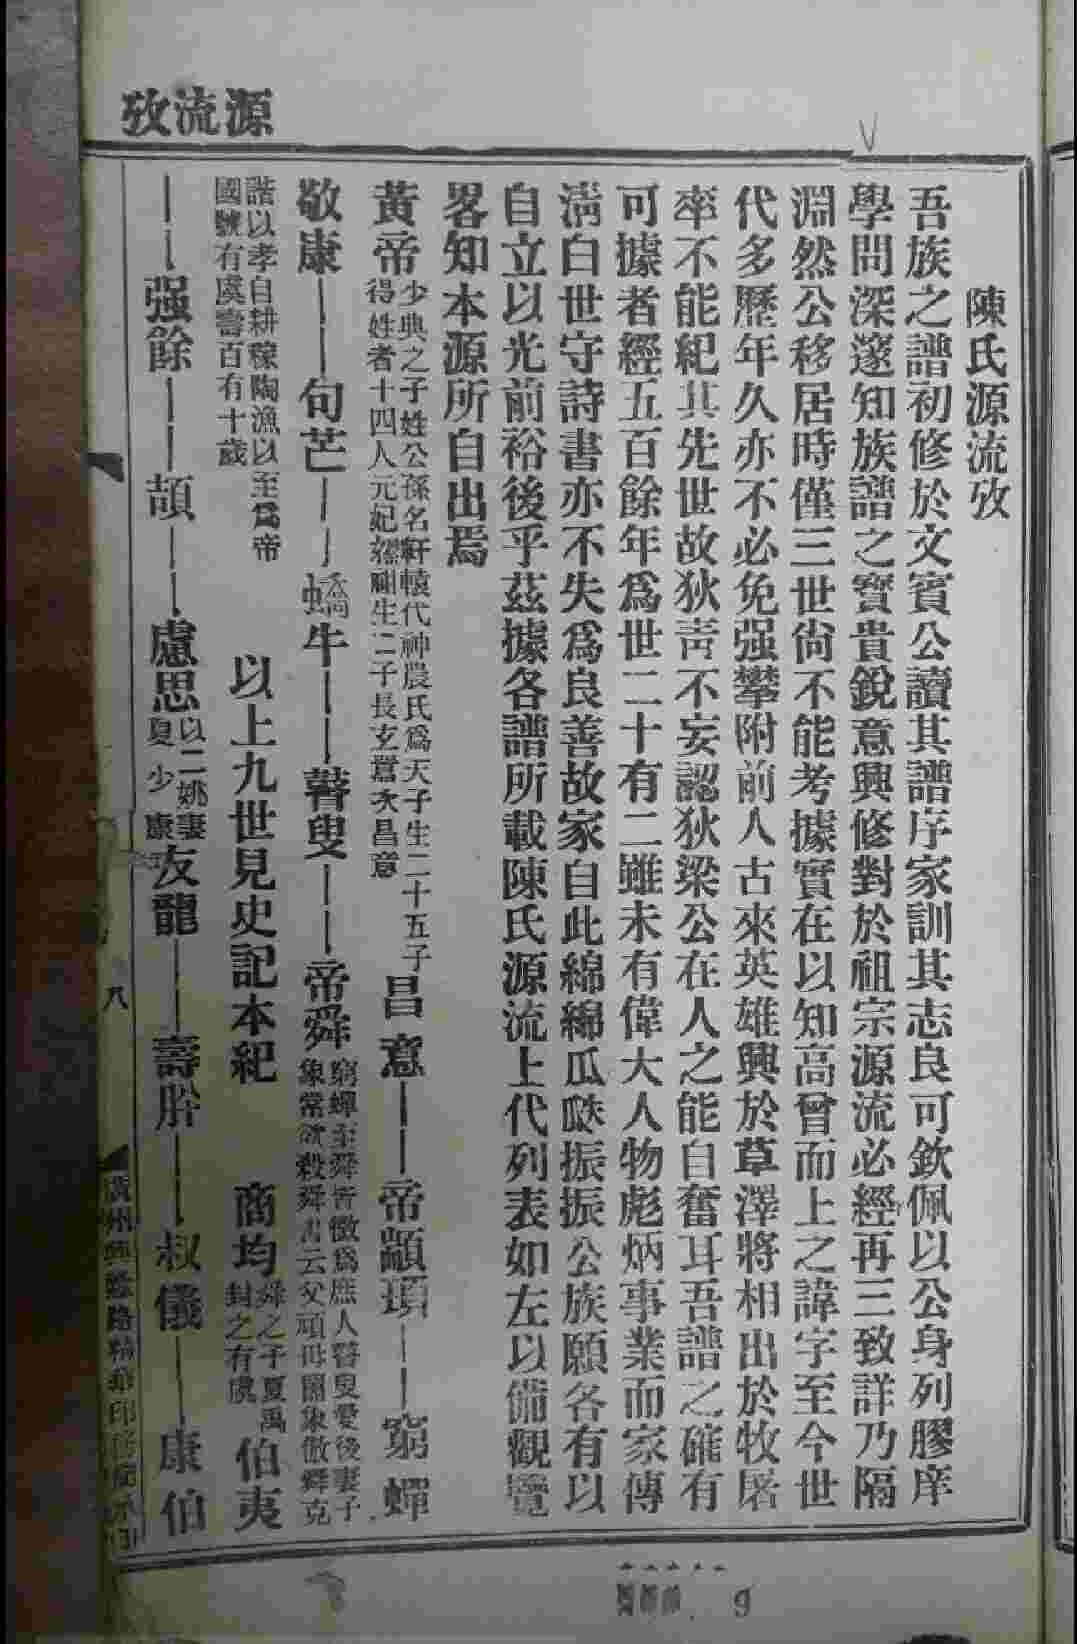 源流攷
陳氏源流攷
吾族之譜初修於文賓公讀其譜序家訓其志良可欽佩以公身列膠庠
學問深邃知族譜之寶貴銳意興修對於祖宗源流必經再三致詳乃隔
淵然公移居時僅三世尙不能考據實在以知高曾而上之諱字至今世
代多歷年久亦不必免强攀附前人古來英雄興於草澤將相出於牧屠
率不能紀其先世故狄靑不妄認狄梁公在人之能自奮耳吾譜之確有
可據者經五百餘年爲世二十有二雖未有偉大人物彪炳事業而家傳
淸白世守詩書亦不失爲良善故家自此綿綿瓜瓞振振公族願各有以
自立以光前裕後乎茲據各譜所載陳氏源流上代列表如左以備觀覽
畧知本源所自出焉
黃帝 少典之子姓公孫名軒轅代神農氏爲天子生二十五子得姓者十四人元妃嫘祖生二子長玄囂次昌意 昌意——帝顓頊——窮蟬
敬康——句芒——蟜牛——瞽叟——帝舜 窮蟬至舜皆微爲庶人瞽叟愛後妻子象常欲殺舜書云父頑母嚚象傲舜克
諧以孝自耕稼陶漁以至爲帝國號有虞壽百有十歲 以上九世見史記本紀 商均 舜之子夏禹封之有虞 伯夷
——强餘——頡——慮思 以二姚妻夏少康 友龍——壽肸——叔儀——康伯
八
9